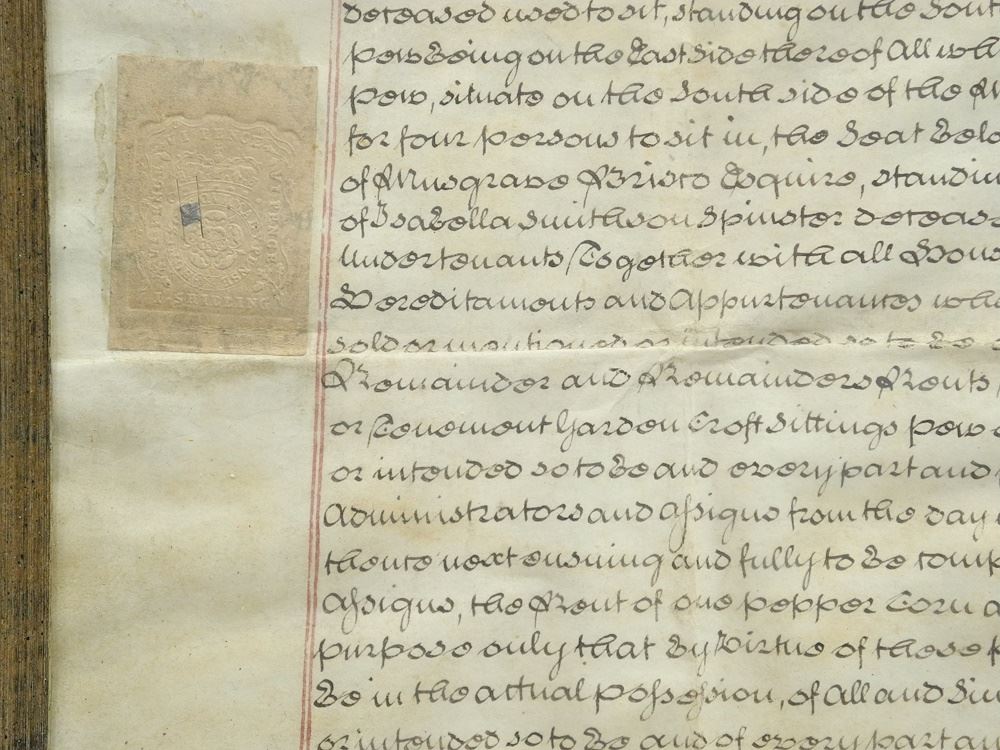 deceased used to sit, standing on the Sout
pew Being on the East Side thereof All wh
pew, situate on the South side of the
for four persons to sit in, the Seat Belo
of Musgrave Brisco Esquire, standin
of Isabella Smithson Spinster deceas
Undertenants Together with all Hous
Hereditaments and Appurtenances wha
sold or mentioned or intended so to Be
Remainder and Remainders Rents
or Tenement Garden Croft Sittings pew
or intended so to Be and every part and
Administrators and Assigns from the day
thence next ensuing and fully to Be comp
Assigns, the Rent of one pepper Corn
purpose only that By Virtue of these p
Be in the actual possession, of All and Sin
or intended so to Be and of every part an
V. SHILLING